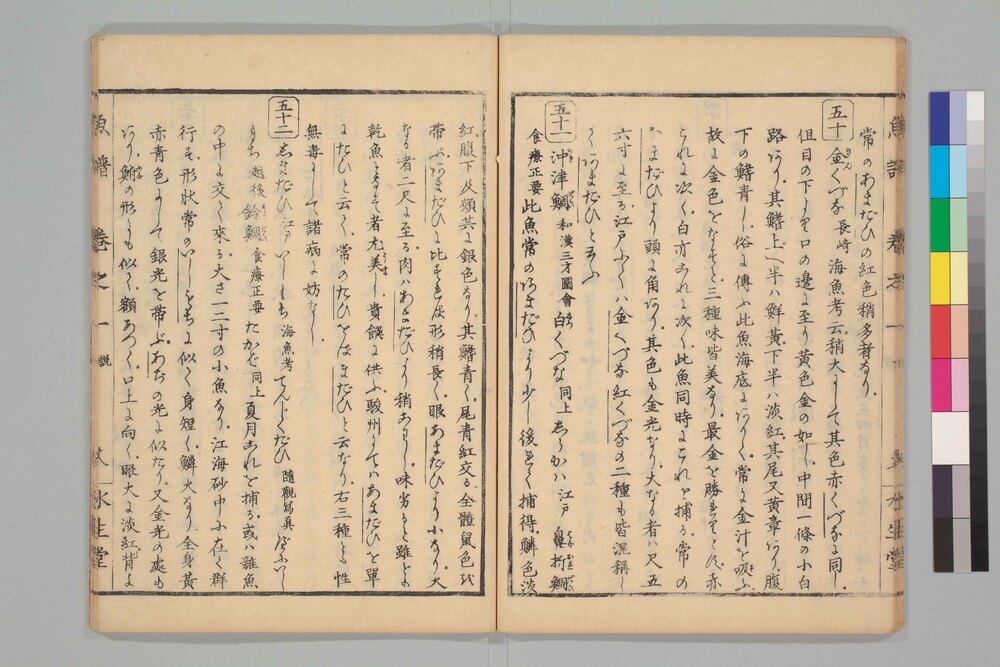 常のあまだひの紅色稍多者なり
五十
金くづな 長崎 海魚考云稍大にして其色赤くくづなに同し
但目の下より口の邊に至り黄色金の如し中間一條の小白
路あり其鰭上へ半ハ鮮黄下半ハ淡紅其尾又黄章あり腹
下の鰭青し俗に傳ふ此魚海底にありて常に金汁を吸ふ
故に金色をなすと三種味皆美なり最金を勝れりとす赤
これに次く白亦これに次く此魚同時にこれを捕る常の
あまだひより頭に角あり其色も金光なり大なる者ハ尺五
六寸に至る江戸ふてハ金くづな紅くづなの二種も皆混稱し
てあまだひと云ふ
五十一
沖津鯛 和漢三才圖會 白くづな 同上 しらかハ 江戸 皐折鯛
食療正要 此魚常のあまだひより少し後れて捕得鱗色淡
紅腹下及頬共に銀色なり其鰭青く尾青紅交る全體鼠色を
帶ぶあまだひに比すれバ形稍長く眼あまだひより小なり大
なる者二尺に至る肉ハあまだひより稍あり味劣ると雖とも
乾魚となす者尤美し貴饌に供ふ駿州にてハあまだひを單
にたひと云て常のたひをはまだひと云なり右三種とも性
無毒にして諸病に妨なし
五十二
しまだひ 江戸 いしもち 海魚考 てんぐだひ 隨觀寫真
もち 越後 鈴鯛 食療正要 たかば 同上 夏月これを捕る或ハ雜魚
の中に交て來る大さ一二寸の小魚なり江海砂中ふ在て群
行す形狀常のいしもちに似て身短く鱗大なり全身黄
赤青色にして銀光を帶ぶあぢの光に似たり又金光の處も
あり鮒の形にも似て額あつく口上に向く眼大に淡紅背よ
魚譜 卷之一 説 水生堂